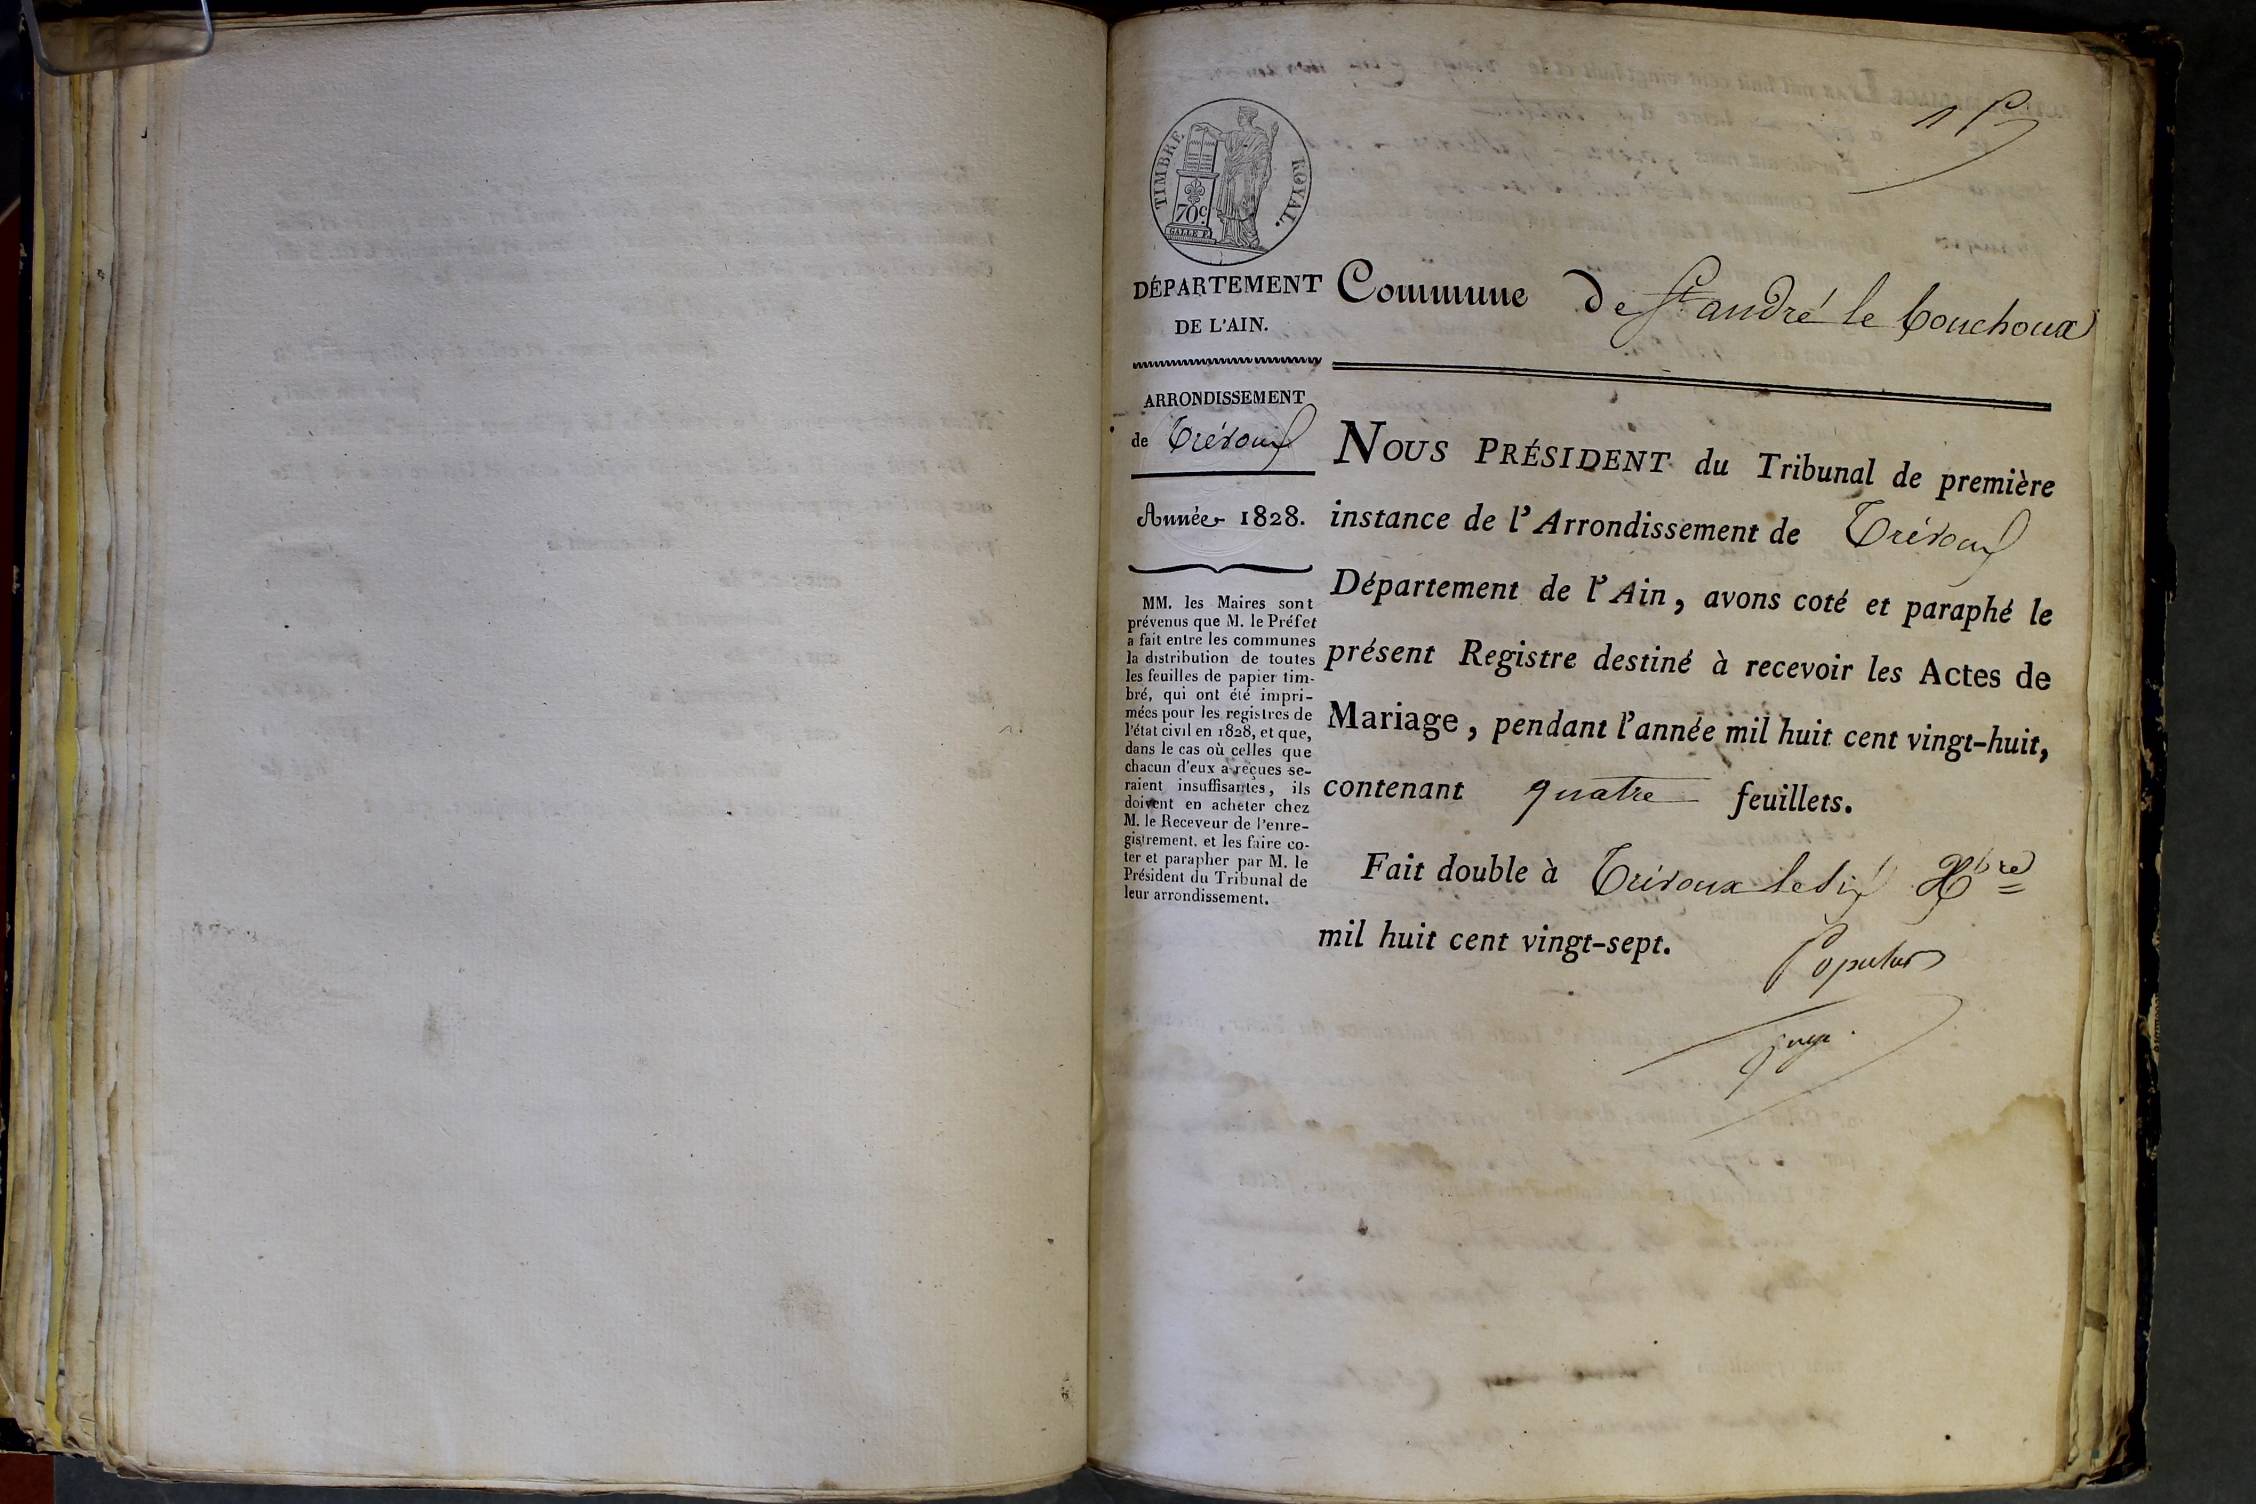 TIMBRE ROYAL.
70c.
DÉPARTEMENT
DE L'AIN.
ARRONDISSEMENT
de Trévoux
Année 1828.
MM. les Maires sont
prévenus que M. le Préfet
a fait entre les communes
la distribution de toutes
les feuilles de papier tim-
bré, qui ont été impri-
mées pour les registres de
l'état civil en 1828, et que,
dans le cas où celles que
chacun d'eux a reçues se-
raient insuffisantes, ils
doivent en acheter chez
M. le Receveur de l'enre-
gistrement, et les faire co-
ter et parapher par M. le
Président du Tribunal de
leur arrondissement.
Commune De St andré le bouchoux
NOUS PRÉSIDENT du Tribunal de première
instance de l'Arrondissement de Trévoux
Département de l'Ain, avons coté et paraphé le
présent Registre destiné à recevoir les Actes de
Mariage, pendant l'année mil huit cent vingt-huit,
contenant quatre feuillets.
Fait double à Trévoux le six Xbre
mil huit cent vingt-sept.
juge